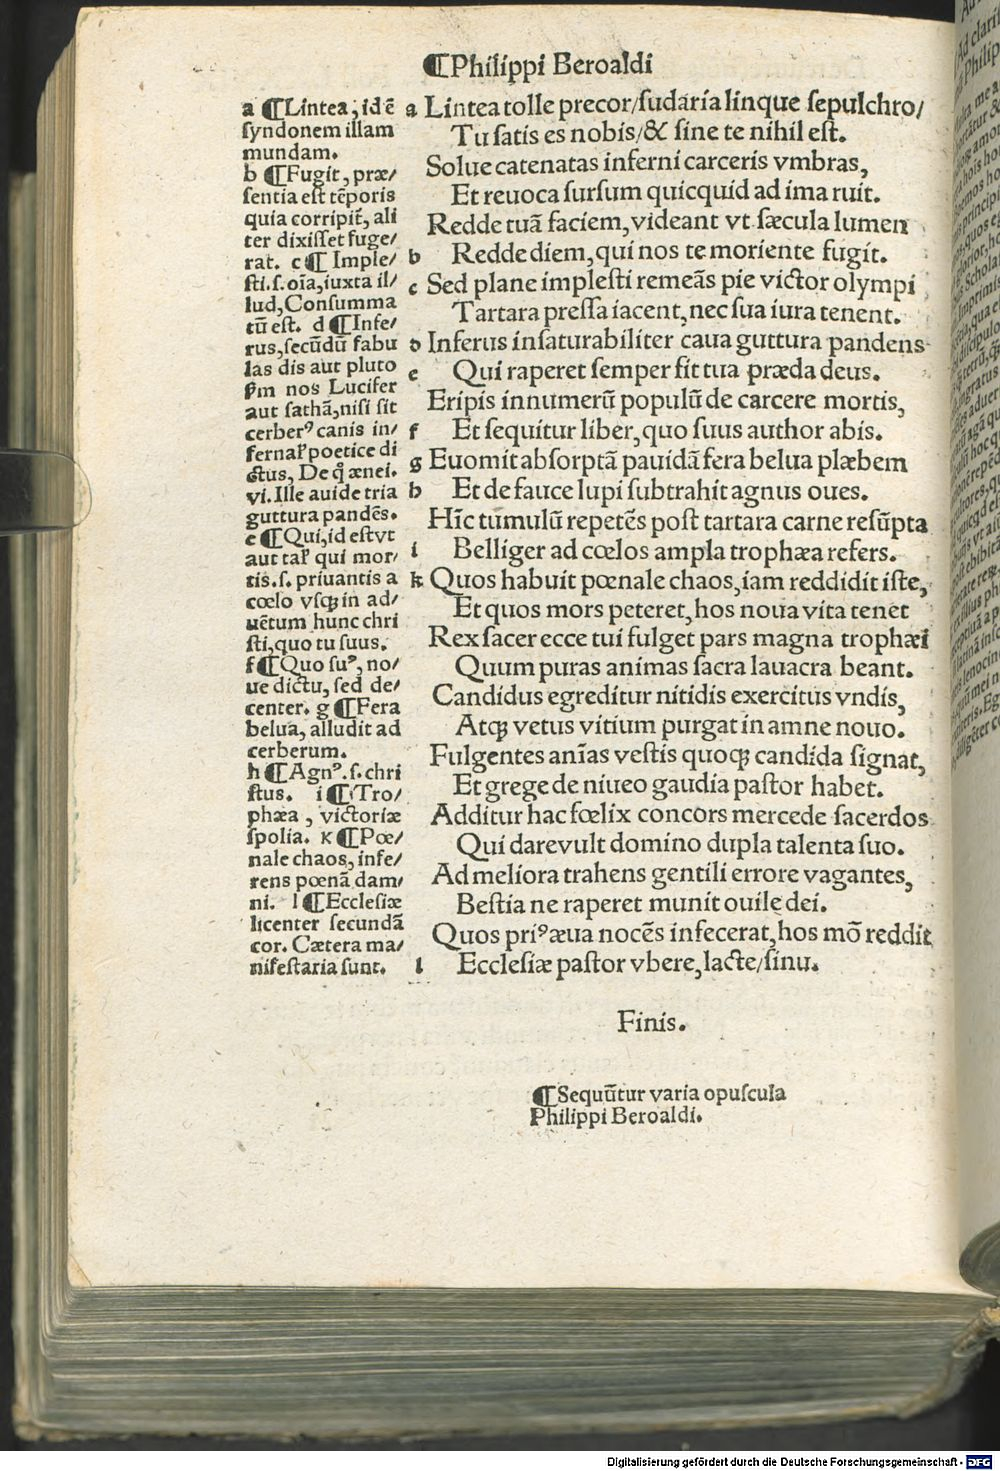 ¶Philippi Beroaldi
a ¶Lintea, id ē
syndonem illam
mundam.
b ¶Fugit, præ/
sentia est tēporis
quia corripit, ali
ter dixisset fuge/
rat. c ¶ Imple/
sti.s.oīa, iuxta il/
lud, Consumma
tū est. d ¶Infe/
rus, secūdū fabu
las dis aut pluto
nos Lucifer
aut sathā, nisi sit
cerberꝰ canis in/
poetice di
ctus, De ænei.
vi. Ille auide tria
guttura pandēs.
e ¶Qui, id est vt
aut qui mor/
tis.s. priuantis a
cœlo vsqꝫ in ad/
uētum hunc chri
sti, quo tu suus.
f ¶Quo suꝰ, no/
ue dictu, sed de/
center. g ¶Fera
belua, alludit ad
cerberum.
h ¶Agnꝰ.s. chri
stus. i ¶Tro/
phæa, victoriæ
spolia. K ¶Pœ/
nale chaos, infe/
rens pœnā dam/
ni. l ¶Ecclesiæ
licenter secundā
cor. Cætera ma/
nifestaria sunt.
a Lintea tolle precor/sudaria linque sepulchro/
Tu satis es nobis/& sine te nihil est.
Solue catenatas inferni carceris vmbras,
Et reuoca sursum quicquid ad ima ruit.
Redde tuā faciem, videant vt sæcula lumen
b Redde diem, qui nos te moriente fugit.
c Sed plane implesti remeās pie victor olympi
Tartara pressa iacent, nec sua iura tenent.
d Inferus insaturabiliter caua guttura pandens
e Qui raperet semper fit tua præda deus.
Eripis innumerū populū de carcere mortis,
f Et sequitur liber, quo suus author abis.
g Euomit absorptā pauidā fera belua plæbem
h Et de fauce lupi subtrahit agnus oues.
Hīc tumulū repetēs post tartara carne resūpta
i Belliger ad cœlos ampla trophæa refers.
k Quos habuit pœnale chaos, iam reddidit iste,
Et quos mors peteret, hos noua vita tenet
Rex sacer ecce tui fulget pars magna trophæi
Quum puras animas sacra lauacra beant.
Candidus egreditur nitidis exercitus vndis,
Atqꝫ vetus vitium purgat in amne nouo.
Fulgentes anīas vestis quoqꝫ candida signat,
Et grege de niueo gaudia pastor habet.
Additur hac fœlix concors mercede sacerdos
Qui dare vult domino dupla talenta suo.
Ad meliora trahens gentili errore vagantes,
Bestia ne raperet munit ouile dei.
Quos priꝰ æua nocēs infecerat, hos mō reddit
l Ecclesiæ pastor vbere, lacte/sinu.
Finis.
¶Sequūtur varia opuscula
Philippi Beroaldi.
Digitalisierung gefördert durch die Deutsche Forschungsgemeinschaft - DFG